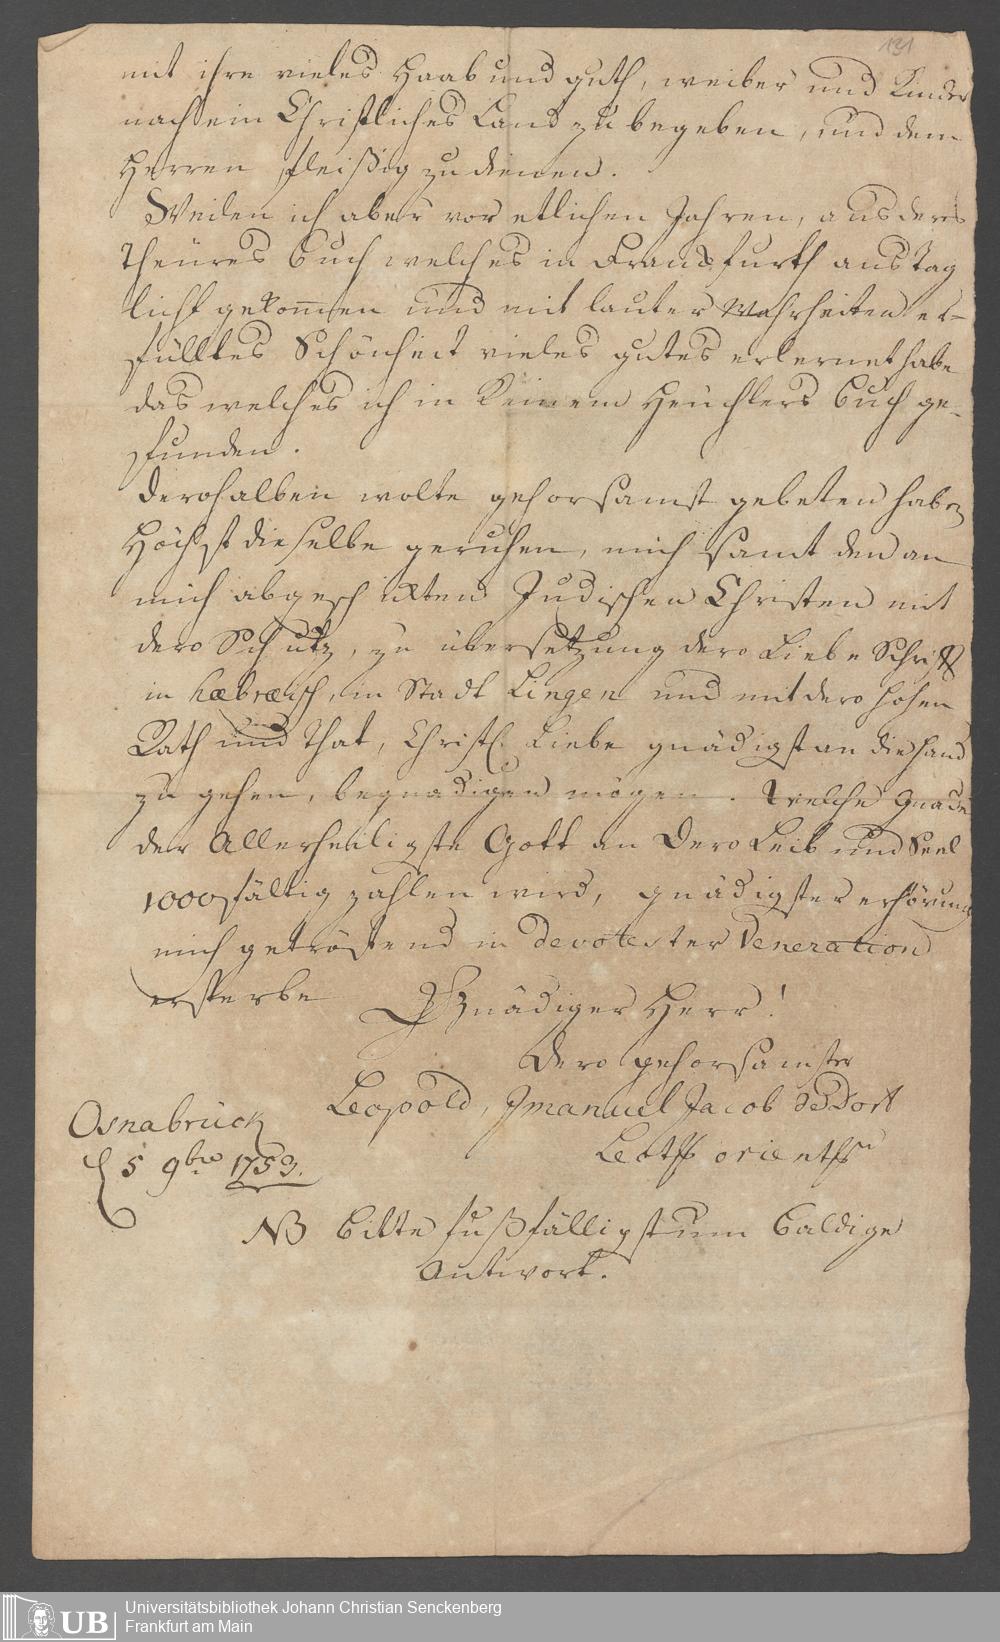 131
mit ihre vieles Haab und guth, weiber und Kinder
nach ein Christliches Land zu begeben, und dem
Herren fleißig zu dienen.
Weilen ich aber vor etlichen Jahren, aus dero
theüres Buch welches in Franckfurth ans Tag
licht gekom̄en und mit lauter Wahrheiten er-
fülltes Schönheit vieles gutes erlernet habe
das welches ich in Keinem Heuchlers Buch ge-
funden.
derohalben wolte gehorsamst gebeten haben
Höchst dieselbe geruhen, mich samt den an
mich abgeschickten Judischen Christen mit
dero Schutz, zu übersetzung dero Liebe Schrifft
in hæbræisch, in Stadt Lingen und mit dero hohen
Rath und That, Christl. Liebe gnädigst an die Hand
zu gehen, begnadigen mögen. Welche Gnade
der Allerheiligste Gott an Dero Leib und Seel
1000fältig zahlen wird, gnädigster erhörung
mich getröstend in devotester Veneration
ersterbe Gnädiger Herr!
Dero gehorsamster
Leopold, Imanuel Jacob de Dort
Osnabrück
5 9bre 1753.
NB Bitte fußfälligst um Baldige
Antwort.
UB Universitätsbibliothek Johann Christian Senckenberg
Frankfurt am Main